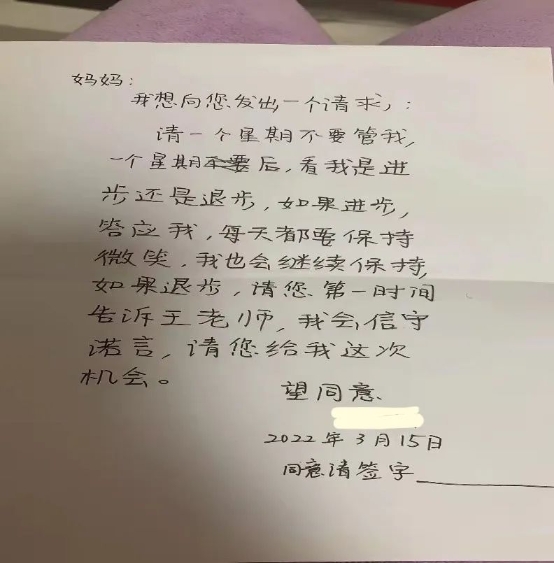 妈妈：
我想向您发出一个请求，：
请一个星期不要管我，
一个星期后，看我是进
步还是退步，如果进步，
答应我，每天都要保持
微笑，我也会继续保持，
如果退步，请您第一时间
告诉王老师，我会信守
诺言，请您给我这次
机会。
望同意
2022年3月15日
同意请签字